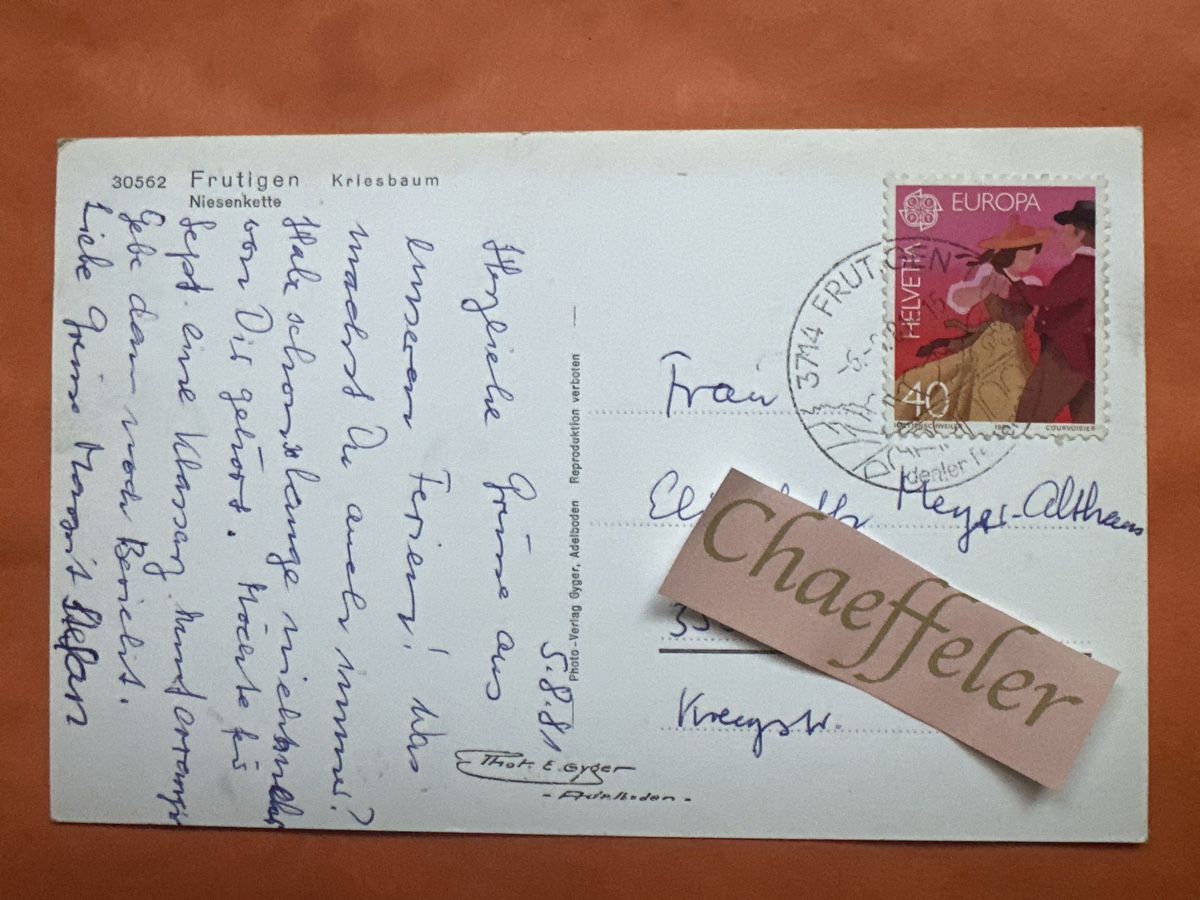 30562 Frutigen Kriesbaum
Niesenkette
5.8.81
Herzliche Grüsse aus
unseren Ferien! Was
machst Du auch immer?
Habe schon lange nichts mehr
von Dir gehört. Möchte für
Sept. eine Klassenz.
Gebe dann noch Bericht.
Liebe Grüsse Stefan
Photo-Verlag Gyger, Adelboden Reproduktion verboten
Phot. E. Gyger
- Adelboden -
EUROPA
HELVETIA
40
COURVOISIER
3714 FRUTIGEN
Idealer
Frau
Meyer-Althaus
Chaeffeler